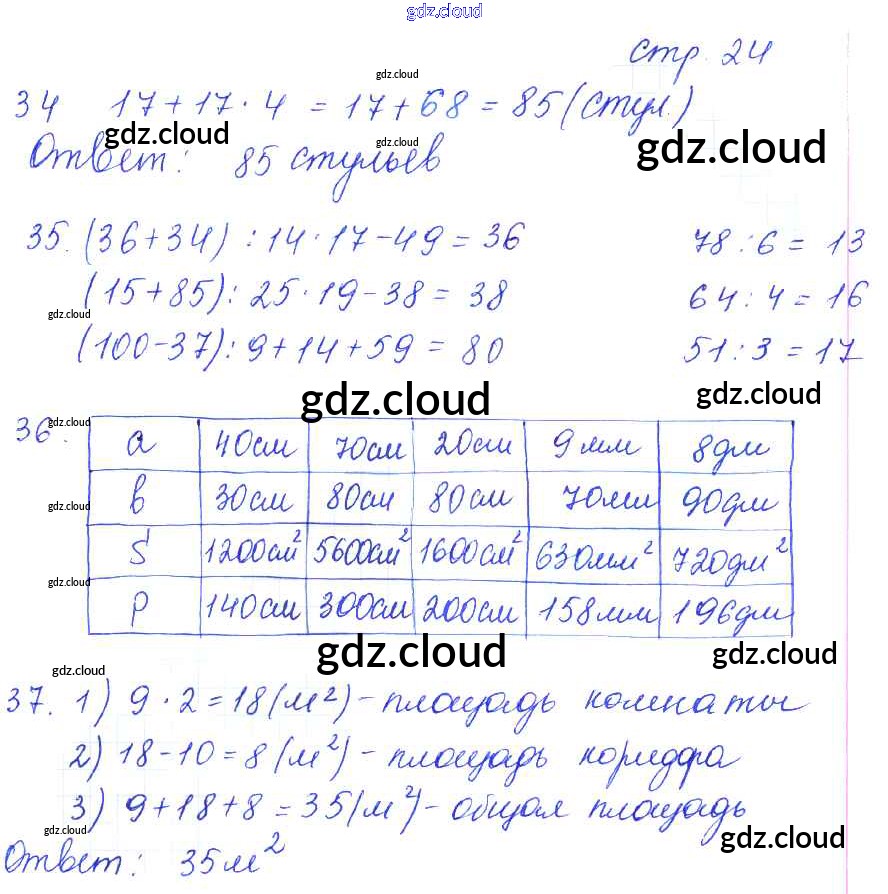 gdz.cloud
стр. 24
gdz.cloud
34 17 + 17 · 4 = 17 + 68 = 85 (стул.)
gdz.cloud gdz.cloud gdz.cloud
Ответ: 85 стульев
35. (36+34) : 14 · 17 – 49 = 36 78 : 6 = 13
(15+85) : 25 · 19 – 38 = 38 64 : 4 = 16
gdz.cloud
(100–37) : 9 + 14 + 59 = 80 51 : 3 = 17
gdz.cloud gdz.cloud
gdz.cloud
36. a 40см 70см 20см 9мм 8дм
gdz.cloud
b 30см 80см 80см 70мм 90дм
S 1200см² 5600см² 1600см² 630мм² 720дм²
gdz.cloud
P 140см 300см 200см 158мм 196дм
gdz.cloud gdz.cloud gdz.cloud
37. 1) 9 · 2 = 18 (м²) – площадь комнаты
2) 18 – 10 = 8 (м²) – площадь коридора
3) 9 + 18 + 8 = 35 (м²) – общая площадь
gdz.cloud gdz.cloud
Ответ: 35м²